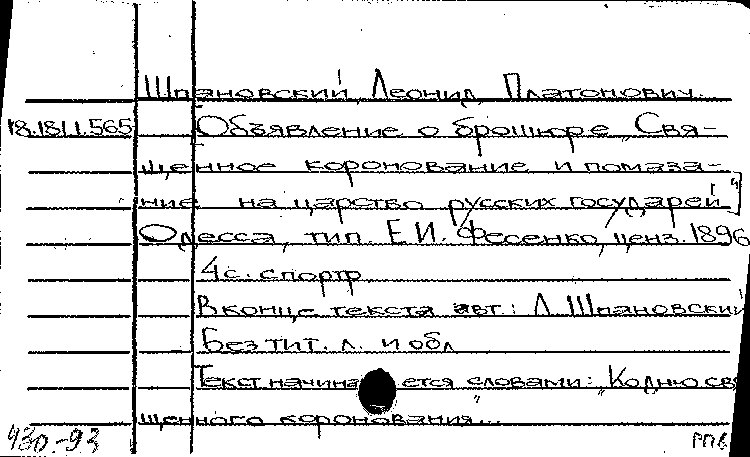 Шпановский, Леонид Платонович.
18.181.1.565 [Объявление о брошюре „Свя-
щенное коронование и помаза-
ние на царство русских государей"]
Одесса, тип. Е.И. Фесенко, ценз. 1896
4с. с портр
В конце текста авт.: Л. Шпановский
Без тит. л. и обл
Текст начинается словами: „Ко дню свя
щенного коронования...
930-93